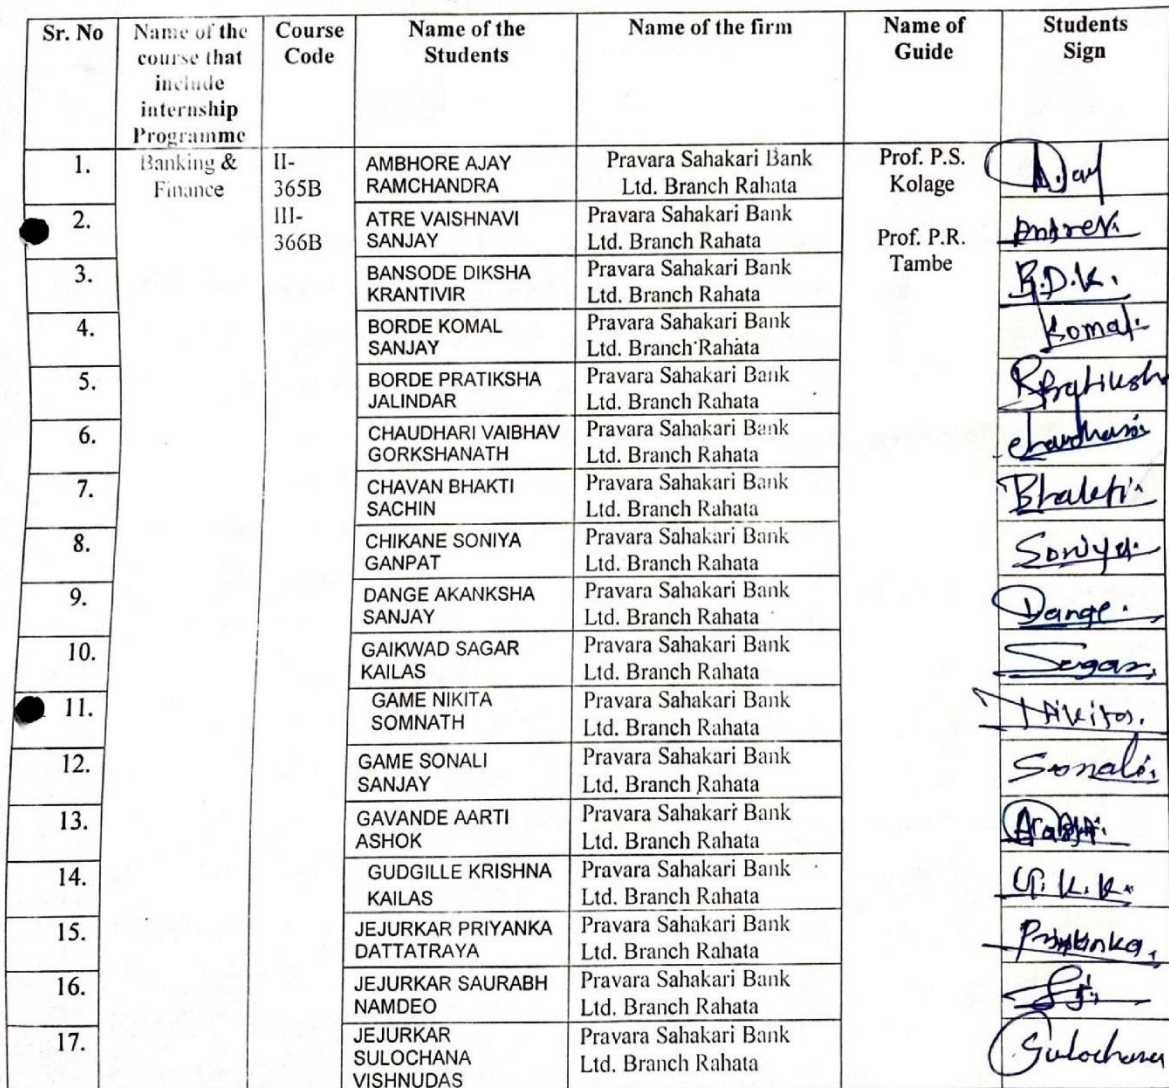 Sr. No
Name of the
course that
include
internship
Programme
Course
Code
Name of the
Students
Name of the firm
Name of
Guide
Students
Sign
1.
Banking &
Finance
II-
365B
III-
366B
AMBHORE AJAY
RAMCHANDRA
Pravara Sahakari Bank
Ltd. Branch Rahata
Prof. P.S.
Kolage
Prof. P.R.
Tambe
2.
ATRE VAISHNAVI
SANJAY
Pravara Sahakari Bank
Ltd. Branch Rahata
3.
BANSODE DIKSHA
KRANTIVIR
Pravara Sahakari Bank
Ltd. Branch Rahata
B.D.K.
4.
BORDE KOMAL
SANJAY
Pravara Sahakari Bank
Ltd. Branch Rahata
Komal.
5.
BORDE PRATIKSHA
JALINDAR
Pravara Sahakari Bank
Ltd. Branch Rahata
6.
CHAUDHARI VAIBHAV
GORKSHANATH
Pravara Sahakari Bank
Ltd. Branch Rahata
7.
CHAVAN BHAKTI
SACHIN
Pravara Sahakari Bank
Ltd. Branch Rahata
Bhakti.
8.
CHIKANE SONIYA
GANPAT
Pravara Sahakari Bank
Ltd. Branch Rahata
Soniya.
9.
DANGE AKANKSHA
SANJAY
Pravara Sahakari Bank
Ltd. Branch Rahata
Dange.
10.
GAIKWAD SAGAR
KAILAS
Pravara Sahakari Bank
Ltd. Branch Rahata
Sagar.
11.
GAME NIKITA
SOMNATH
Pravara Sahakari Bank
Ltd. Branch Rahata
12.
GAME SONALI
SANJAY
Pravara Sahakari Bank
Ltd. Branch Rahata
Sonali.
13.
GAVANDE AARTI
ASHOK
Pravara Sahakari Bank
Ltd. Branch Rahata
14.
GUDGILLE KRISHNA
KAILAS
Pravara Sahakari Bank
Ltd. Branch Rahata
G.K.K.
15.
JEJURKAR PRIYANKA
DATTATRAYA
Pravara Sahakari Bank
Ltd. Branch Rahata
16.
JEJURKAR SAURABH
NAMDEO
Pravara Sahakari Bank
Ltd. Branch Rahata
17.
JEJURKAR
SULOCHANA
VISHNUDAS
Pravara Sahakari Bank
Ltd. Branch Rahata
Sulochana